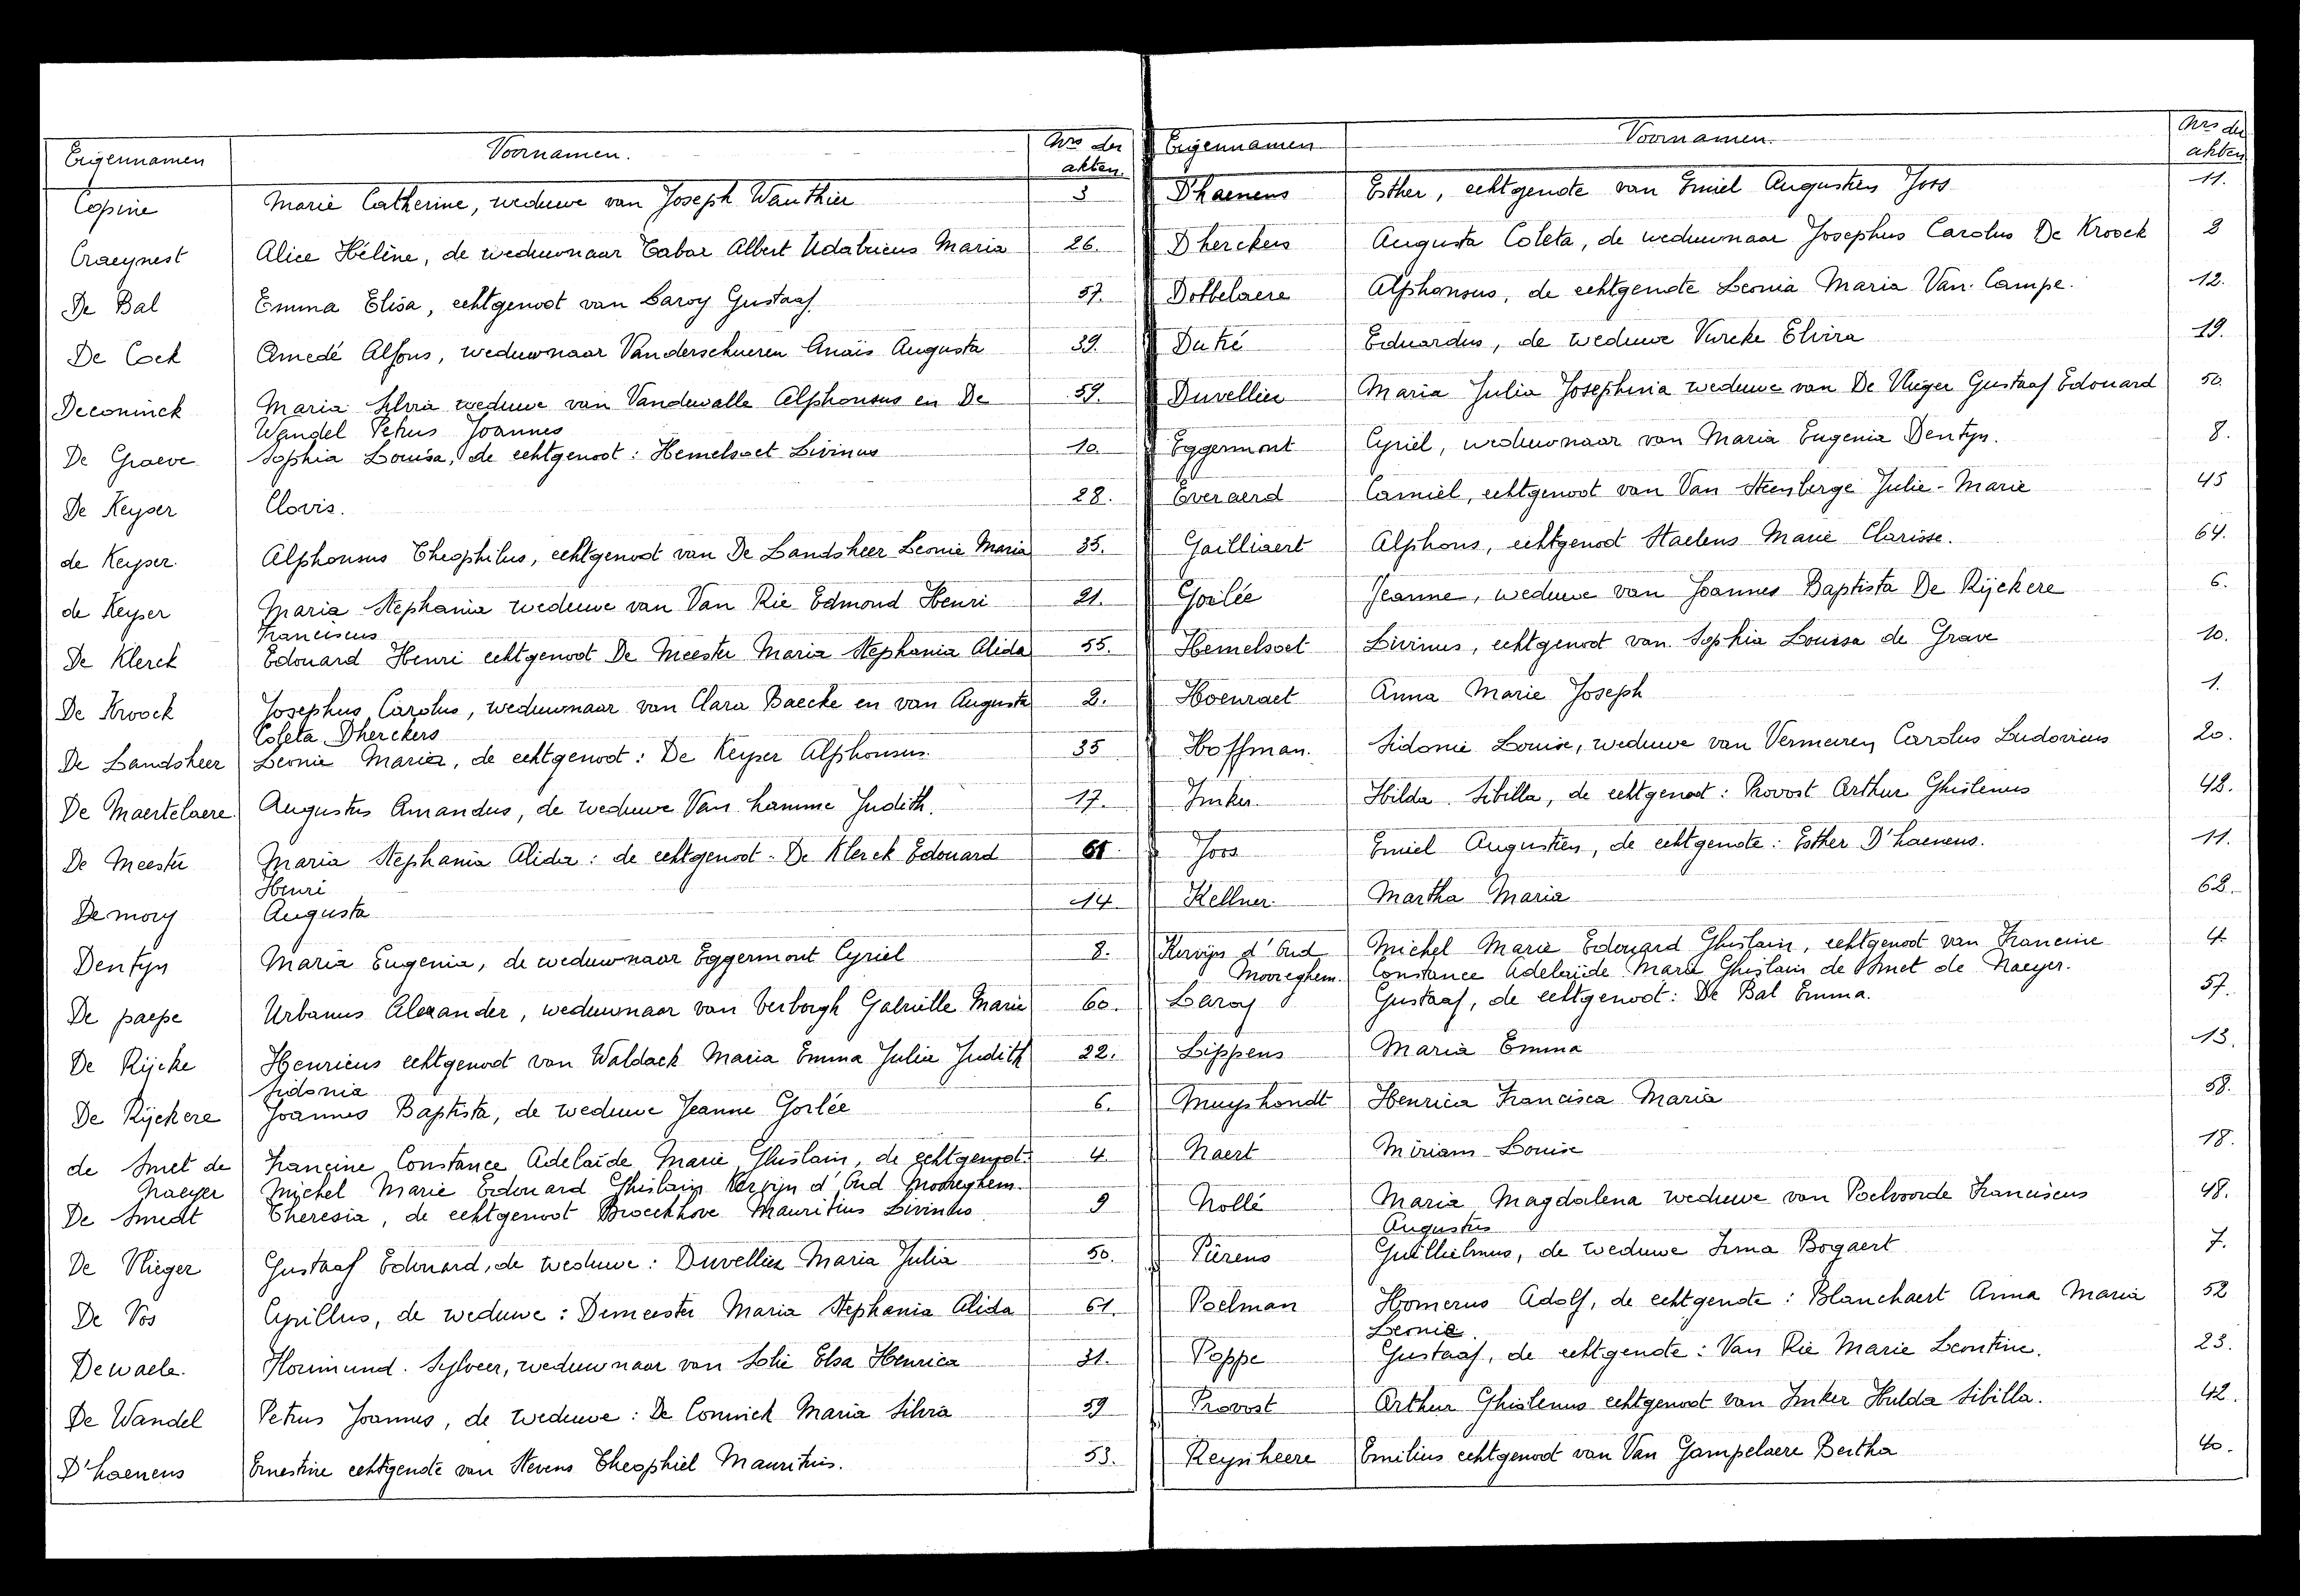 Eigennamen Voornamen. Nrs der akten.
Copine Marie Catherine, weduwe van Joseph Wauthier 3
Craeynest Alice Hélène, de weduwnaar Tabar Albert Udalricus Maria 26.
De Bal Emma Elisa, echtgenoot van Laroy Gustaaf. 57.
De Cock Amedé Alfons, weduwnaar Vanderschueren Anaïs Augusta 39.
Deconinck Maria Silvia weduwe van Vandewalle Alphonsus en De 59.
Wandel Petrus Joannes
De Graeve Sophia Louisa, de echtgenoot: Hemelsoet Livinus 10.
De Keyser Clovis. 28.
de Keyser. Alphonsus Theophilus, echtgenoot van De Landsheer Leonie Maria 35.
de Keyser Maria Stephania weduwe van Van Rie Edmond Henri 21.
Franciscus
De Klerck Edouard Henri echtgenoot De Meester Maria Stephania Alida 55.
De Kroock Josephus Carolus, weduwnaar van Clara Baecke en van Augusta 2.
Coleta Dherckers
De Landsheer Leonie Maria, de echtgenoot: De Keyser Alphonsus. 35
De Maertelaere. Augustus Amandus, de weduwe Van hamme Judith. 17.
De Meester Maria Stephania Alida: de echtgenoot. De Klerck Edouard
Henri
Demory Augusta 14
Dentyn Maria Eugenia, de weduwnaar Eggermont Cyriel 8.
De paepe Urbanus Alexander, weduwnaar van Verborgh Gabrielle Marie 60.
De Rijcke Henricus echtgenoot van Waldack Maria Emma Julia Judith 22.
Sidonia
De Rijckere Joannes Baptista, de weduwe Jeanne Gorlée 6.
de Smet de Francine Constance Adelaïde Marie Ghislain, de echtgenoot: 4
Naeyer Michel Marie Edouard Ghislain Kervijn d'Oud Mooreghem.
De Smedt Theresia, de echtgenoot Broeckhove Mauritius Livinus 9
De Vlieger Gustaaf Edouard, de weduwe: Duvellier Maria Julia 50.
De Vos Cyrillus, de weduwe: Demeester Maria Stephania Alida 61.
Dewaele. Florimund. Sylveer, weduwnaar van Solie Elsa Henrica 31.
De Wandel Petrus Joannes, de weduwe: De Coninck Maria Silvia 59
D'haenens Ernestine echtgenote van Stevens Theophiel Mauritius. 53.
Eigennamen Voornamen. Nrs der akten
D'haenens Esther, echtgenote van Emiel Augustien Joos 11.
Dherckers Augusta Coleta, de weduwnaar Josephus Carolus De Kroock 2
Dobbelaere Alphonsus, de echtgenote Leonia Maria Van Campe. 12.
Dutré Eduardus, de weduwe Vurcke Elvira 19.
Duvellier Maria Julia Josephina weduwe van De Vlieger Gustaaf Edouard 50.
Eggermont Cyriel, weduwnaar van Maria Eugenia Dentyn. 8.
Everaerd Camiel, echtgenoot van Van Steenberge Julie-Marie 45
Gailliaert Alphons, echtgenoot Staelens Marie Clarisse. 64.
Gorlée Jeanne, weduwe van Joannes Baptista De Rijckere 6.
Hemelsoet Livinus, echtgenoot van Sophia Louisa de Grave 10.
Hoenraet Anna Marie Joseph 1.
Hoffman. Sidonie Louise, weduwe van Vermeiren Carolus Ludovicus 20.
Imker Hilda Sibilla, de echtgenoot: Provost Arthur Ghislenus 42.
Joos Emiel Augustien, de echtgenote: Esther D'haenens. 11.
Kellner Martha Maria 62.
Kervijn d'Oud Michel Marie Edouard Ghislain, echtgenoot van Francine 4.
Mooreghem. Constance Adelaïde Marie Ghislain de Smet de Naeyer.
Laroy Gustaaf, de echtgenoot: De Bal Emma. 57.
Lippens Maria Emma 13.
Muyshondt Henrica Francisca Maria 58.
Naert Miriam Louise 18.
Nollé Maria Magdalena weduwe van Poelvoorde Franciscus 48.
Augustus
Piérens Guillielmus, de weduwe Irma Bogaert 7.
Poelman Homerus Adolf, de echtgenote: Blanchaert Anna Maria 52
Leonie.
Poppe Gustaaf, de echtgenote: Van Rie Marie Leontine. 23.
Provost Arthur Ghislenus echtgenoot van Imker Hulda Sibilla. 42.
Reynheere Emilius echtgenoot van Van Gampelaere Bertha 40.